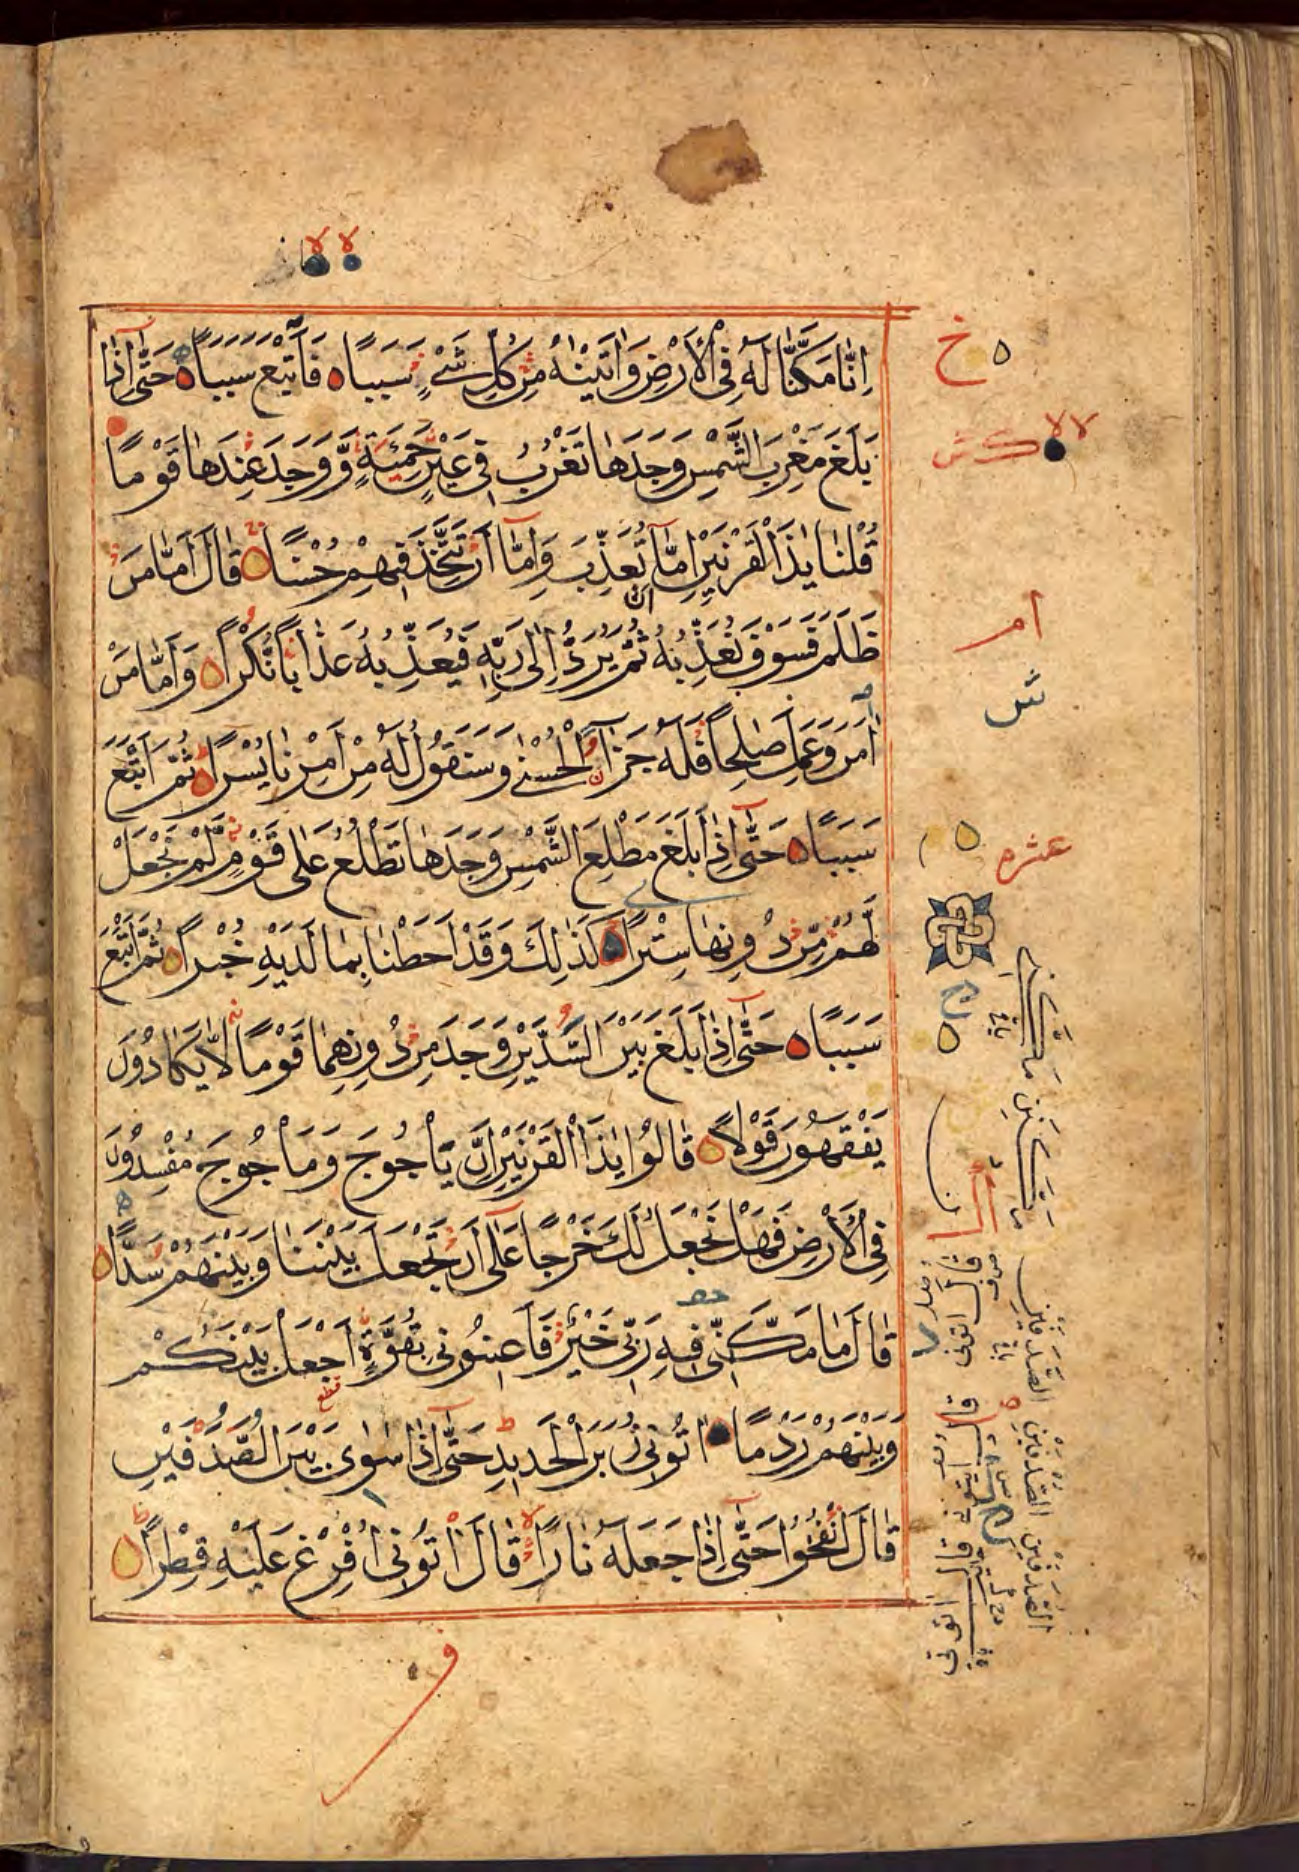 اِنَّا مَكَّنَّا لَهُ فِى الْاَرْضِ وَاٰتَيْنٰهُ مِنْ كُلِّ شَىْءٍ سَبَبًا ه فَاَتْبَعَ سَبَبًا ه حَتّٰٓى اِذَا
بَلَغَ مَغْرِبَ الشَّمْسِ وَجَدَهَا تَغْرُبُ فِى عَيْنٍ حَمِئَةٍ وَّوَجَدَ عِنْدَهَا قَوْمًا
قُلْنَا يٰذَا الْقَرْنَيْنِ اِمَّآ اَنْ تُعَذِّبَ وَاِمَّآ اَنْ تَتَّخِذَ فِيْهِمْ حُسْنًا ه قَالَ اَمَّا مَنْ
ظَلَمَ فَسَوْفَ نُعَذِّبُهُ ثُمَّ يُرَدُّ اِلٰى رَبِّهِ فَيُعَذِّبُهُ عَذَابًا نُّكْرًا ه وَاَمَّا مَنْ
اٰمَنَ وَعَمِلَ صٰلِحًا فَلَهُ جَزَآءً الْحُسْنٰى وَسَنَقُوْلُ لَهُ مِنْ اَمْرِنَا يُسْرًا ه ثُمَّ اَتْبَعَ
سَبَبًا ه حَتّٰٓى اِذَا بَلَغَ مَطْلِعَ الشَّمْسِ وَجَدَهَا تَطْلُعُ عَلٰى قَوْمٍ لَّمْ نَجْعَلْ
لَّهُمْ مِّنْ دُوْنِهَا سِتْرًا ه كَذٰلِكَ وَقَدْ اَحَطْنَا بِمَا لَدَيْهِ خُبْرًا ه ثُمَّ اَتْبَعَ
سَبَبًا ه حَتّٰٓى اِذَا بَلَغَ بَيْنَ السُّدَّيْنِ وَجَدَ مِنْ دُوْنِهِمَا قَوْمًا لَّا يَكَادُوْنَ
يَفْقَهُوْنَ قَوْلًا ه قَالُوْا يٰذَا الْقَرْنَيْنِ اِنَّ يَاْجُوْجَ وَمَاْجُوْجَ مُفْسِدُوْنَ
فِى الْاَرْضِ فَهَلْ نَجْعَلُ لَكَ خَرْجًا عَلٰٓى اَنْ تَجْعَلَ بَيْنَنَا وَبَيْنَهُمْ سَدًّا ه
قَالَ مَا مَكَّنِّى فِيْهِ رَبِّى خَيْرٌ فَاَعِيْنُوْنِى بِقُوَّةٍ اَجْعَلْ بَيْنَكُمْ
وَبَيْنَهُمْ رَدْمًا ه اٰتُوْنِى زُبَرَ الْحَدِيْدِ حَتّٰٓى اِذَا سَاوٰى بَيْنَ الصَّدَفَيْنِ
قَالَ انْفُخُوْا حَتّٰٓى اِذَا جَعَلَهُ نَارًا قَالَ اٰتُوْنِى اُفْرِغْ عَلَيْهِ قِطْرًا ه
خ ه
لا لا
ام
ش
عشره
الصدفين الصدفين الصدفين
قال اتوني
قال اتوني